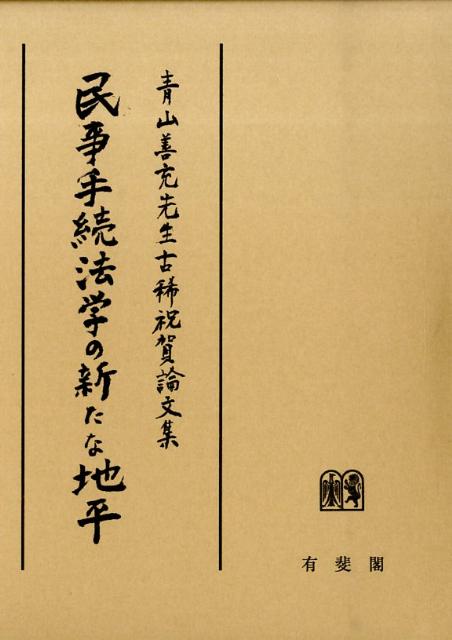 青山善充先生古稀祝賀論文集
民事手続法学の新たな地平
有斐閣